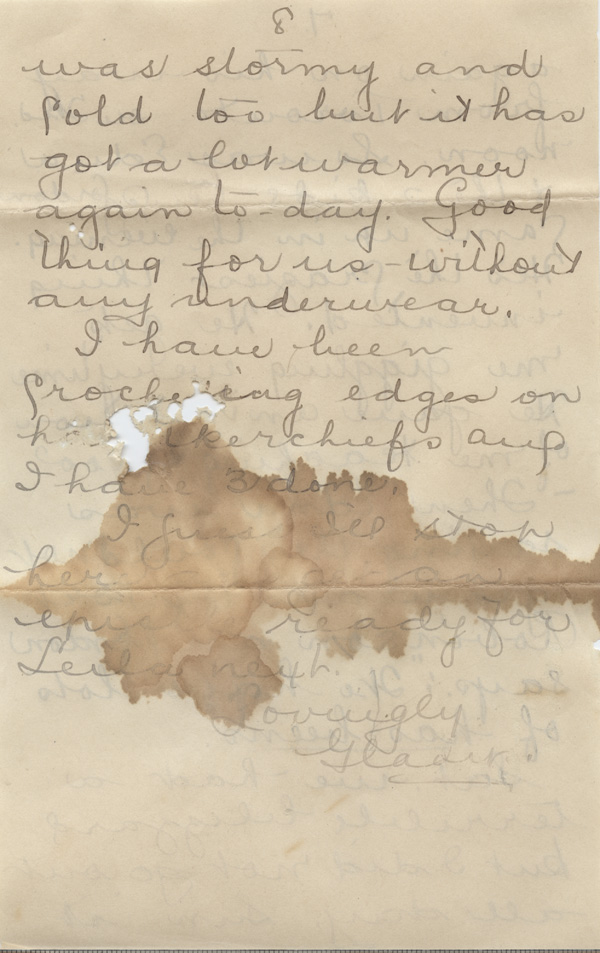 8
was stormy and
cold too but it has
got a lot warmer
again to-day. Good
thing for us - without
any underwear.
I have been
crocheting edges on
handkerchiefs and
I have 3 done.
I guess I'll stop
here
ready for
Leila next.
Lovingly
Gladys.